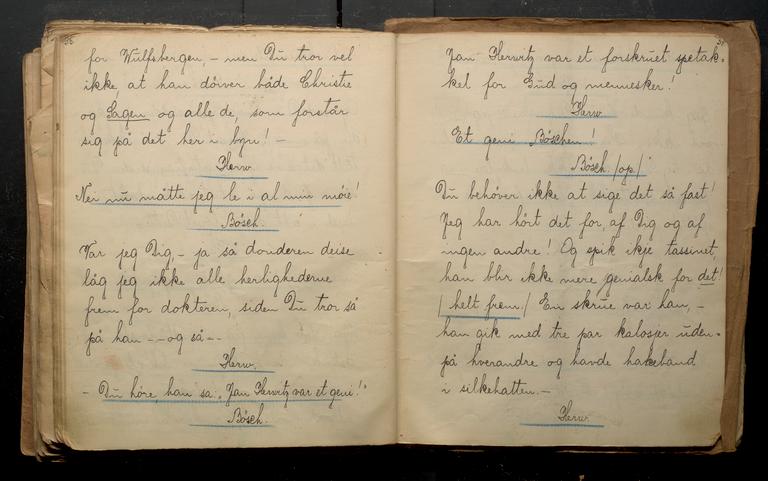 for Wulfsbergen, – men Du tror vel
ikke, at han döiver både Christie
og Sagen og alle de, som forstår
sig på det her i byn! –
Herw.
Nei nu måtte jeg le i al min möie!
Bösch.
Var jeg Dig, – ja så donderen deise
låg jeg ikke alle herlighederne
frem for dokteren, siden Du tror så
på han – – og så – –
Herw.
– Du höre, han sa: „Jan Herwitz var et geni!"
Bösch.
Jan Herwitz var et forskruet spetak-
kel for Gud og mennesker!
Herw.
Et geni Böschen!
Bösch. /op/
Du behöver ikke at sige det så fast!
Jeg har hört det för, af Dig og af
ingen andre! Og spik ikje tassinet,
han blir ikke mere genialsk for det!
/helt frem/ En skrue var han, –
han gik med tre par kalosjer uden-
på hverandre og havde hakeband
i silkehatten. –
Herw.